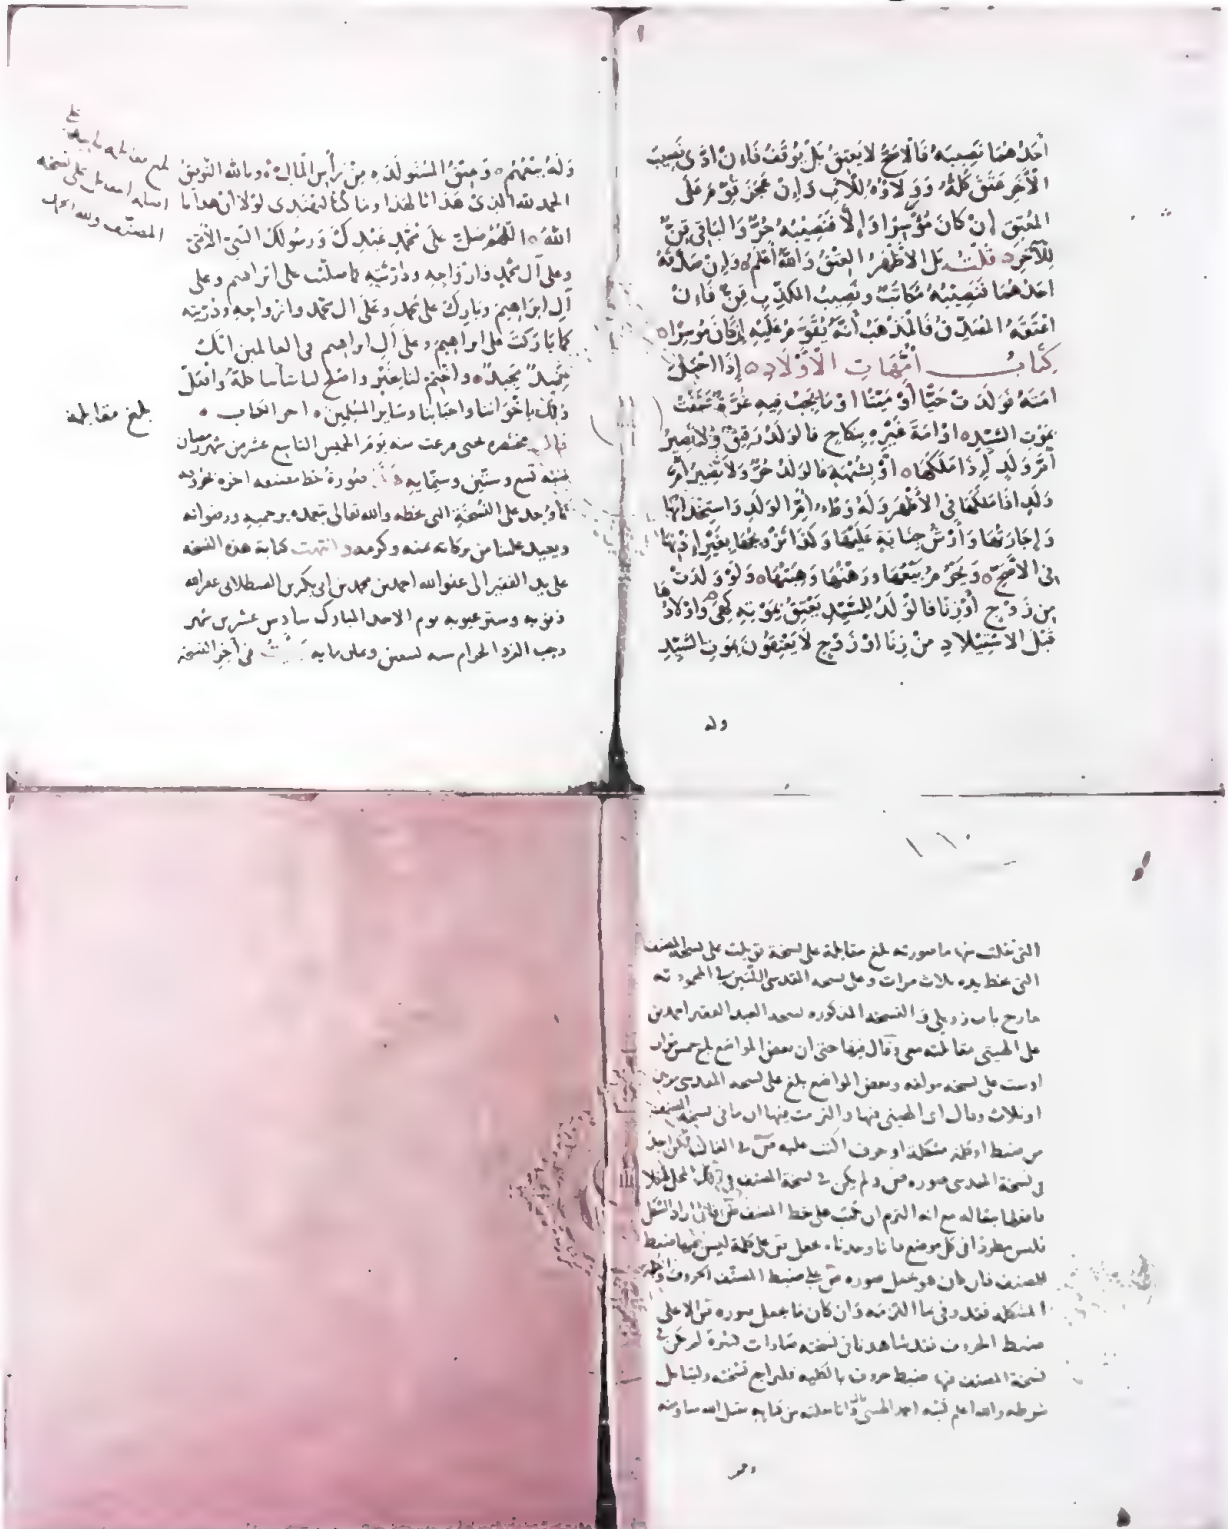 أَحَدُهُمَا نَصِيبَهُ فَالْأَصَحُّ لَا يَعْتِقُ بَلْ يُوقَفُ فَإِنْ أَدَّى نَصِيبَ
الْآخَرِ عَتَقَ كُلُّهُ وَوَلَاؤُهُ لِلْأَبِ وَإِنْ عَجَزَ قُوِّمَ عَلَى
الْمُعْتِقِ إِنْ كَانَ مُوسِرًا وَإِلَّا فَنَصِيبُهُ حُرٌّ وَالْبَاقِي قِنٌّ
لِلْآخَرِ قُلْتُ بَلِ الْأَظْهَرُ الْعِتْقُ وَاللَّهُ أَعْلَمُ وَإِنْ صَدَّقَهُ
أَحَدُهُمَا فَنَصِيبُهُ مُكَاتَبٌ وَنَصِيبُ الْمُكَذِّبِ قِنٌّ فَإِنْ
أَعْتَقَهُ الْمُصَدِّقُ فَالْمَذْهَبُ أَنَّهُ يُقَوَّمُ عَلَيْهِ إِنْ كَانَ مُوسِرًا
كِتَابُ أُمَّهَاتِ الْأَوْلَادِ إِذَا أَحْبَلَ
أَمَتَهُ فَوَلَدَتْ حَيًّا أَوْ مَيِّتًا أَوْ مَا يَجِبُ فِيهِ غُرَّةٌ عَتَقَتْ
بِمَوْتِ السَّيِّدِ أَوْ أَمَةَ غَيْرِهِ بِنِكَاحٍ فَالْوَلَدُ رَقِيقٌ وَلَا تَصِيرُ
أُمَّ وَلَدٍ إِذَا مَلَكَهَا أَوْ بِشُبْهَةٍ فَالْوَلَدُ حُرٌّ وَلَا تَصِيرُ أُمَّ
وَلَدٍ إِذَا مَلَكَهَا فِي الْأَظْهَرِ وَلَهُ وَطْءُ أُمِّ الْوَلَدِ وَاسْتِخْدَامُهَا
وَإِجَارَتُهَا وَأَرْشُ جِنَايَةٍ عَلَيْهَا وَكَذَا تَزْوِيجُهَا بِغَيْرِ إِذْنِهَا
فِي الْأَصَحِّ وَيَحْرُمُ بَيْعُهَا وَرَهْنُهَا وَهِبَتُهَا وَلَوْ وَلَدَتْ
مِنْ زَوْجٍ أَوْ زِنًا فَالْوَلَدُ لِلسَّيِّدِ يَعْتِقُ بِمَوْتِهِ كَهِيَ وَأَوْلَادُهَا
قَبْلَ الِاسْتِيلَادِ مِنْ زِنًا أَوْ زَوْجٍ لَا يَعْتِقُونَ بِمَوْتِ السَّيِّدِ
وله
وَلَهُ بَيْعُهُمْ وَعِتْقُ الْمُسْتَوْلَدَةِ مِنْ رَأْسِ الْمَالِ وبالله التوفيق
الحمد لله الذي هدانا لهذا وما كنا لنهتدي لولا أن هدانا
الله اللهم صل على محمد عبدك ورسولك النبي الأمي
وعلى آل محمد وأزواجه وذريته كما صليت على ابراهيم وعلى
آل ابراهيم وبارك على محمد وعلى آل محمد وأزواجه وذريته
كما باركت على ابراهيم وعلى آل ابراهيم في العالمين انك
حميد مجيد واختم لنا بخير وأصلح لنا شأننا كله وافعل
ذلك بإخواننا وأحبابنا وسائر المسلمين آخر الكتاب
قال مختصره يحيى فرغت منه يوم الخميس التاسع عشر من شهر رمضان
سنة تسع وستين وستمايه صورة خط مصنفه آخره
كما وجد على النسخة التي بخطه والله تعالى يتغمده برحمته ورضوانه
ويعيد علينا من بركاته بمنه وكرمه وانتهت كتابة هذه النسخة
على يد الفقير الى عفو الله احمد بن محمد بن ابي بكر بن القسطلاني غفر الله
ذنوبه وستر عيوبه يوم الاحد المبارك سادس عشرين شهر
رجب الفرد الحرام سنه وثمان مايه في آخر النسخة
بلغ مقابلة على نسخة
المصنف ولله الحمد
بلغ مقابلة
١١٠
التي نقلت منها ما صورته بلغ مقابلة على نسخة قوبلت على نسخة المصنف
التي بخط يده ثلاث مرات وعلى نسخه المقدسي اللتين في المحموديه
خارج باب زويله والنسخه المذكوره نسخة العبد الفقير احمد بن
على الهيتي مقابلته معي وقال فيها حتى ان بعض المواضع بلغ خمس مرات
اوست على نسخه مولفه وبعض المواضع بلغ على نسخه المقدسي مرتين
او ثلاث وقال اى الهيتي فيها والتزمت فيها ان ما في نسخة المصنف
من ضبط او كلمة مشكلة او حرف اكتب عليه ص في الغالب
في نسخة المقدسي صوره ولم يكن في نسخة المصنف في ذلك المحل
مع انه التزم ان يكتب على خط المصنف
فليس مطردا في كل موضع فانا وجدناه يجعل على كلمة ليس فيها ضبط
للمصنف فان كان هو يجعل صوره ص على ضبط المصنف الحروف
المشكله فقد وفى بما التزمه وان كان ما جعل صوره الا على
ضبط الحروف فقد شاهدنا في نسخته صادات كثيرة لم يكن في
نسخة المصنف فيها ضبط حروف بالكليه فليراجع نسخته وليتامل
شرطه والله اعلم كتبه احمد الهيتي